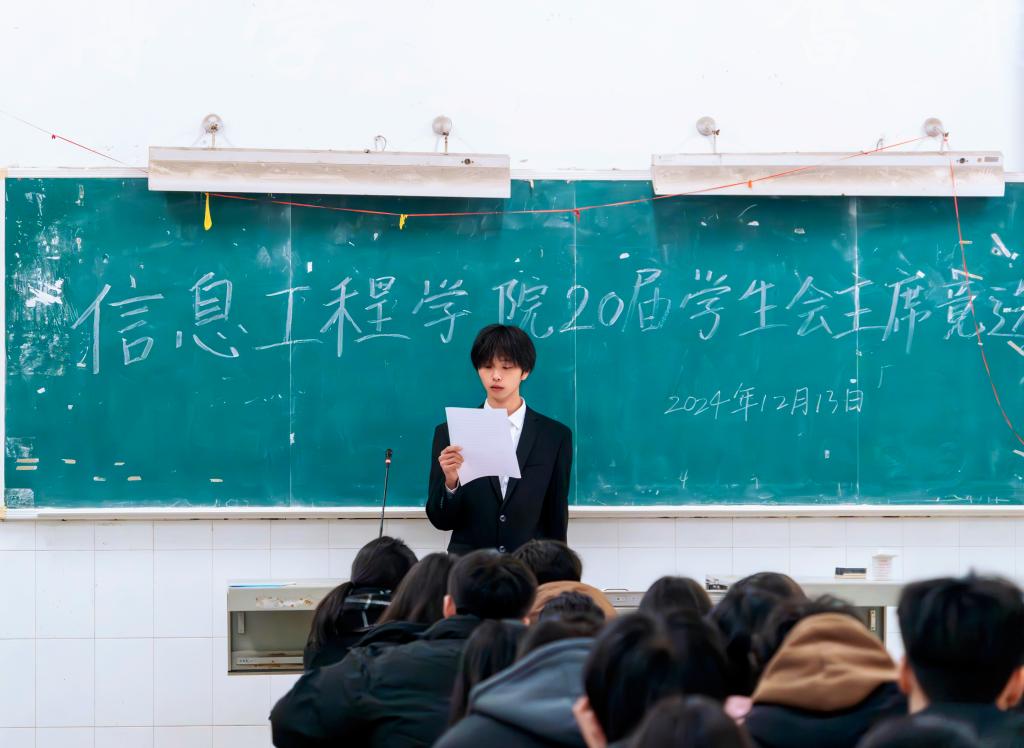 信息工程学院20届学生会主席竟选
2024年12月13日